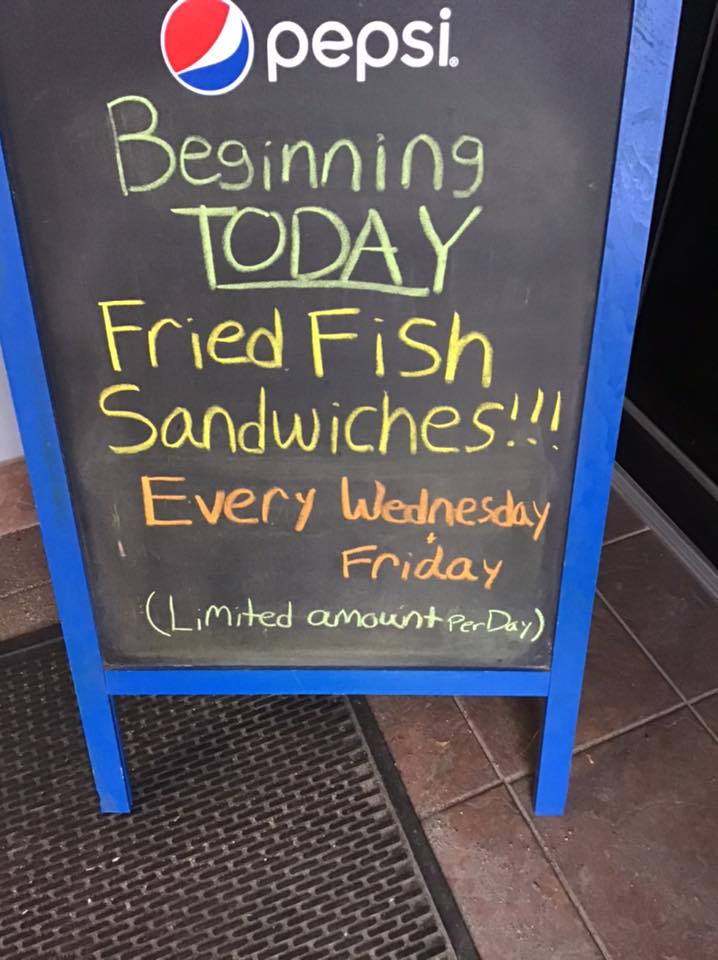 pepsi®
Beginning
TODAY
Fried Fish
Sandwiches!!!
Every Wednesday
+
Friday
(Limited amount Per Day)